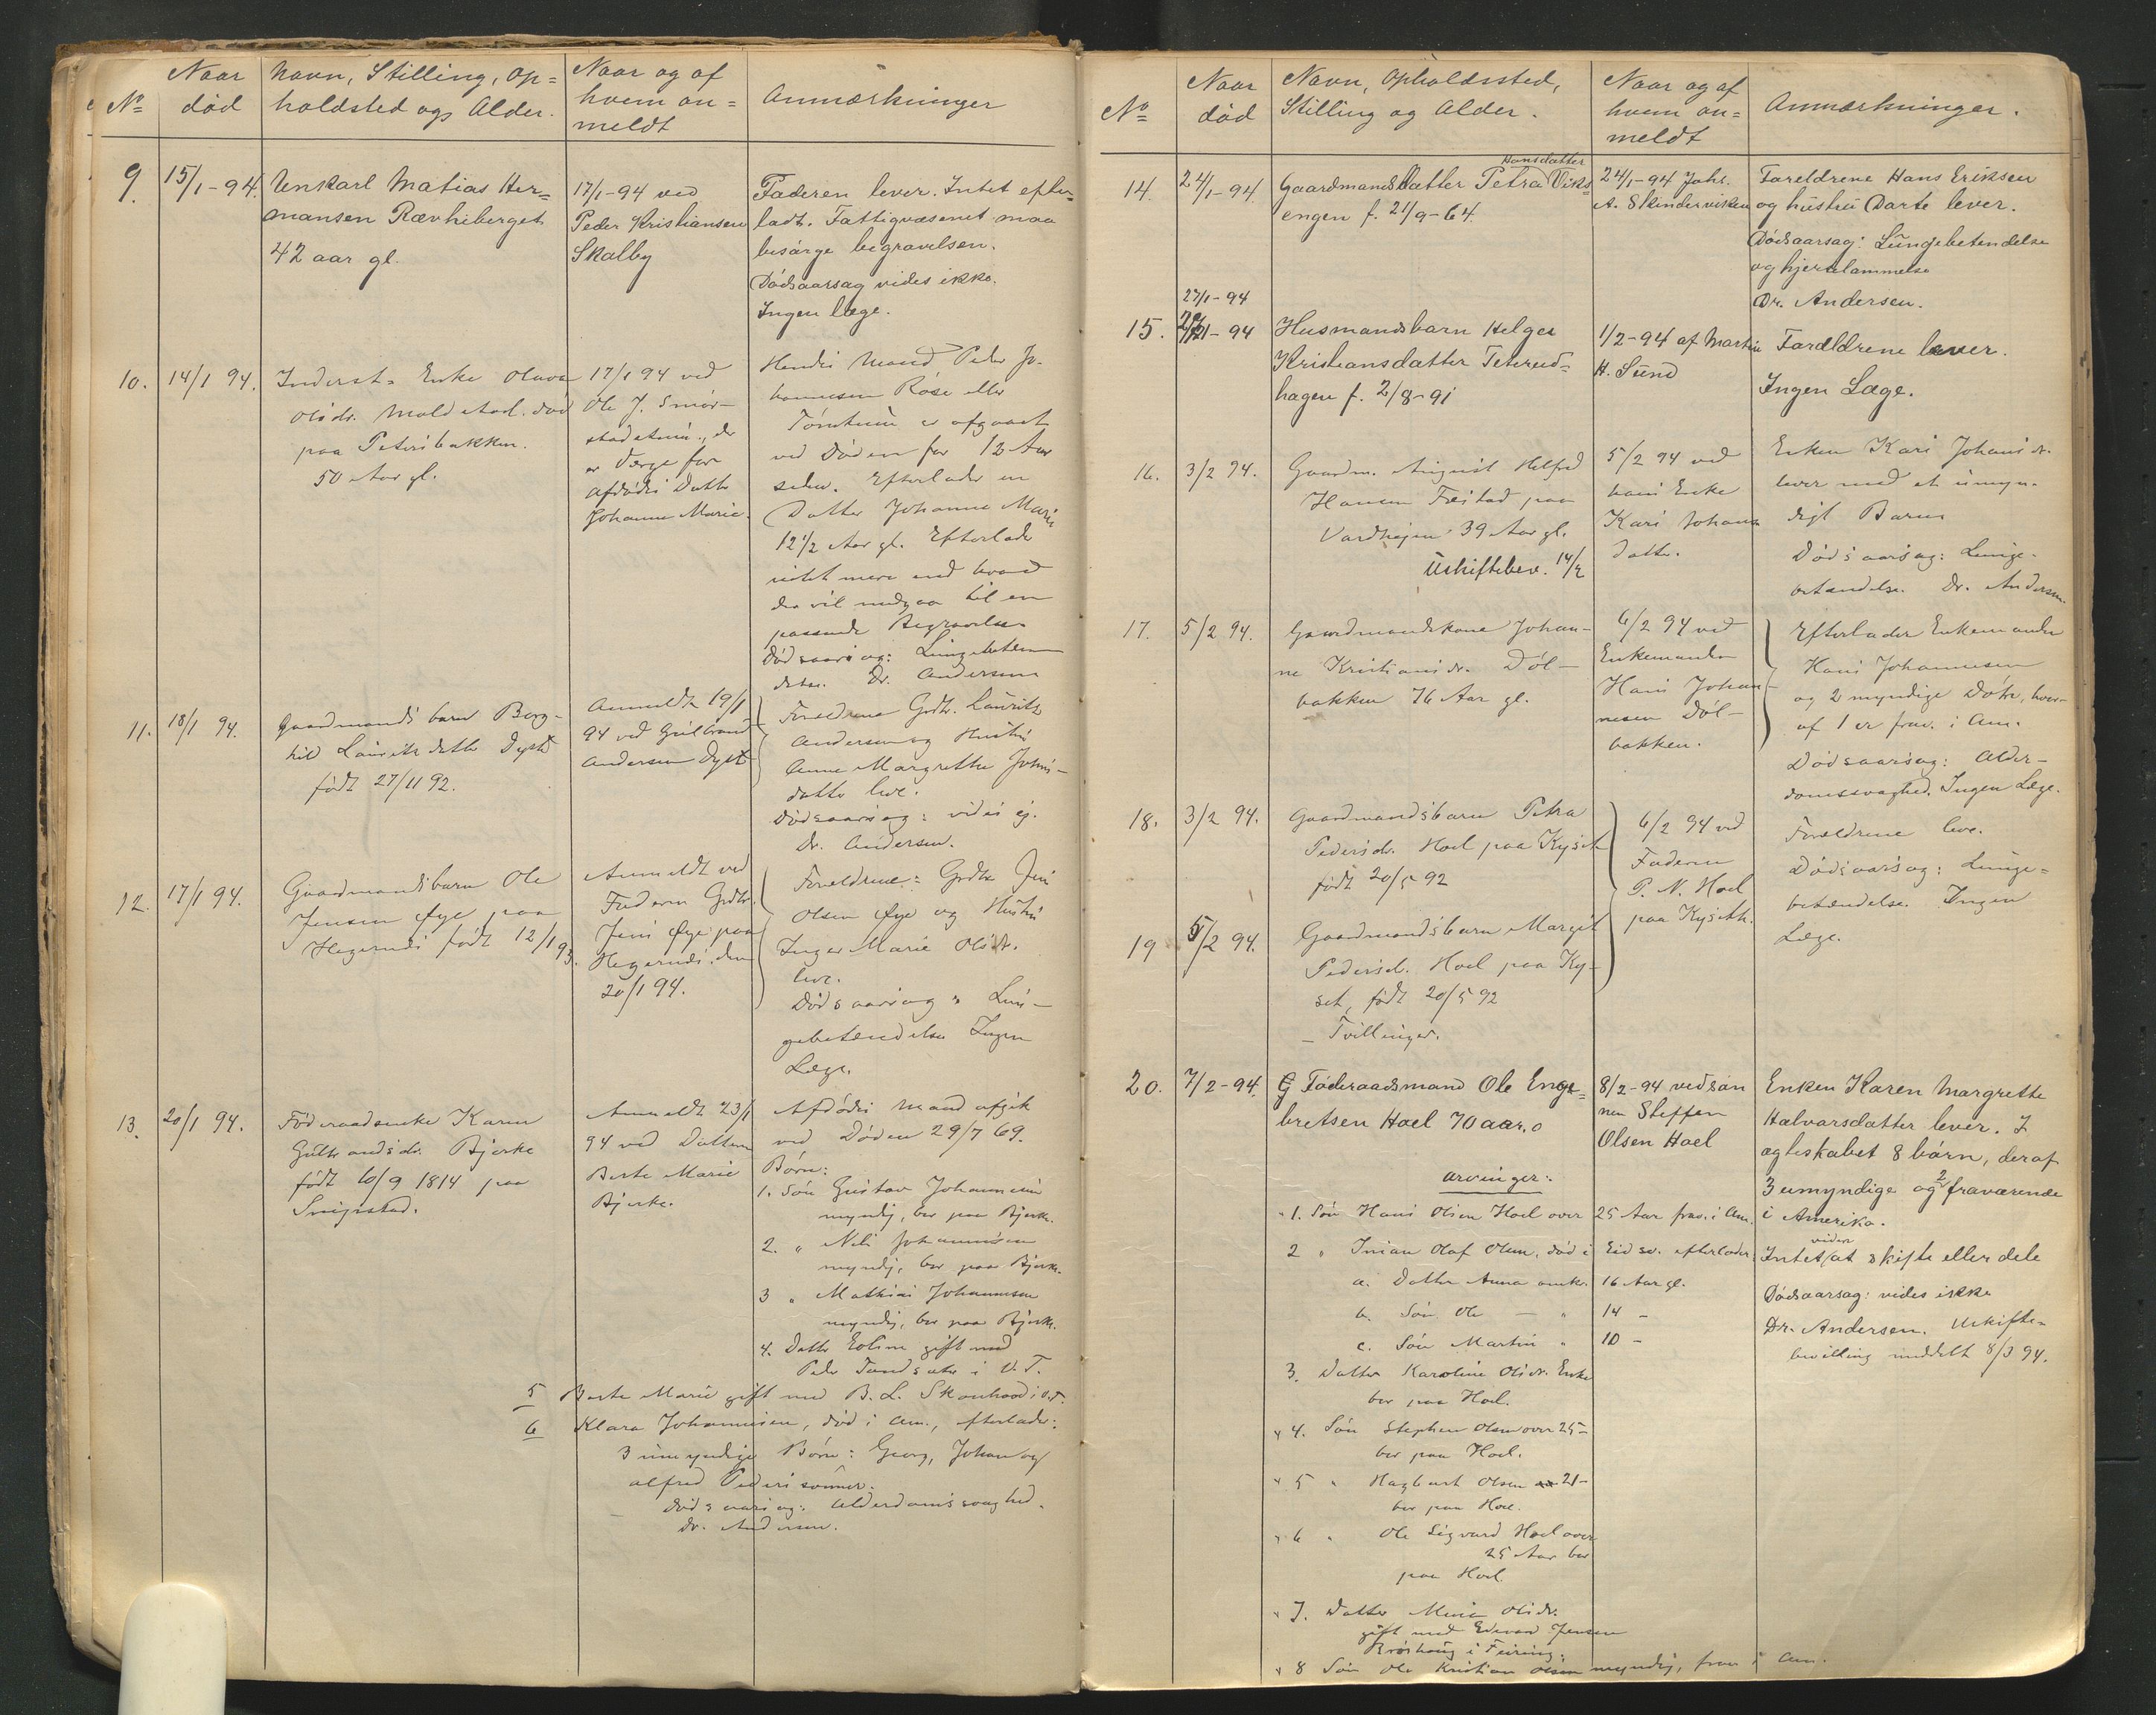 No
Naar død
Navn, Stilling, Op=
holdsted og Alder.
Naar og af
hvem an=
meldt
Anmærkninger
9.
15/1-94.
Unkarl Matias Her=
mansen Rævhiberget
42 aar gl.
17/1-94 ved
Peder Kristiansen
Skalby
Faderen lever. Intet efter=
ladt. Fattigvæsenet maa
besørge begravelsen.
Dødsaarsag vides ikke.
Ingen læge.
10.
14/1 94.
Inderst. Enke Olava
Olsdr. Molstad. død
paa Petersbakken.
50 Aar gl.
17/1 94 ved
Ole J. Smør-
stadstuen, der
er Værge for
afdødes Datter
Johanne Marie.
Hendes Mand Peder Jo-
hannesen Røise eller
er afgaaet
ved Døden for 12 Aar
siden. Efterlader en
Datter Johanne Marie
12 1/2 Aar gl. Efterlader
intet mere end hvad
der vil medgaa til en
passende Begravelse
Dødsaarsag: Lungebetæn
delse. Dr. Andersen
11.
18/1 94.
Gaardmandsbarn Borg-
hild Lauritsdatter Dyst
født 27/11 92.
Anmeldt 19/1
94 ved Gulbrand
Andersen Dyst
Forældrene Grdbr. Laurits
Andersen og Hustru
Anne Margrethe Johns-
datter leve.
Dødsaarsag: vides ej.
Dr. Andersen.
12.
17/1 94.
Gaardmandsbarn Ole
Jensen Øye paa
Hegernæs født 12/1 93.
Anmeldt ved
Faderen Grdbr.
Jens Øye paa
Hegernæs den
20/1 94.
Forældrene: Grdbr Jens
Olsen Øye og Hustru
Inger Marie Olsdtr.
leve.
Dødsaarsag: Lun-
gebetændelse Ingen
Læge.
13.
20/1 94.
Föderaadsenke Karen
Gulbrandsdr. Bjerke
født 10/9 1814 paa
Smørstad.
Anmeldt 23/1
94 ved Datteren
Berte Marie
Bjerke.
Afdødes Mand afgik
ved Døden 29/7 69.
Børn:
1. Søn Gustav Johannesen
myndig, bor paa Bjerke.
2. " Nils Johannesen
myndig, bor paa Bjerke.
3 " Mathias Johannesen
myndig, bor paa Bjerke.
4. Datter Eline gift med
Peder i V. T.
5 Berte Marie gift med B. L. Skonhovd i V.T.
6 Klara Johannesen, død i Am., efterlader:
3 umyndige Børn: Georg, Johan og
Alfred Pederssønner.
Dødsaarsag: Alderdomssvaghed.
Dr. Andersen.
No
Naar død
Navn, Opholdssted,
Stilling og Alder.
Naar og af
hvem an=
meldt
Anmærkninger.
14.
24/1-94.
Hansdatter
Gaardmandsdatter Petra Viks=
engen f. 21/9-64.
24/1-94 Johs.
A. Skinderviken
Foreldrene Hans Eriksen
og hustru Dorte lever.
Dødsaarsag: Lungebetendelse
og hjertelammelse
Dr. Andersen.
27/1-94
15.
Husmandsbarn Helga
Kristiansdatter Teterud=
hagen f. 2/8-91
1/2-94 af Martin
H. Sund
Forældrene lever.
Ingen Læge.
16.
3/2 94.
Gaardm. August Helfred
Hansen Festad paa
Vardhøjen 39 Aar gl.
Uskiftebev. 14/2
5/2 94 ved
hans Enke
Kari Johans
datter.
Enken Kari Johansdr.
lever med et umyn-
digt Barn
Dødsaarsag: Lunge-
betændelse. Dr. Andersen.
17.
5/2 94.
Gaardmandskone Johan-
ne Kristiansdr. Døl-
bakken 76 Aar gl.
6/2 94 ved
Enkemanden
Hans Johan-
nesen Døl-
bakken.
Efterlader Enkemanden
Hans Johannesen
og 2 myndige Døtre, hvor-
af 1 er frav. i Am.
Dødsaarsag: Alder-
domssvaghed. Ingen Læge.
18.
3/2 94.
Gaardmandsbarn Petra
Pedersdr. Hoel paa Kyset
født 20/5 92
6/2 94 ved
Faderen
P. N. Hoel
paa Kyseth.
Forældrene leve.
Dødsaarsag: Lunge=
betændelse. Ingen
Læge.
19
5/2 94.
Gaardmandsbarn Margit
Pedersd. Hoel paa Ky-
set, født 20/5 92
- Tvillinger.
20.
7/2-94.
Föderaadsmand Ole Enge=
bretsen Hoel 70 aar.
8/2-94 ved søn
nen Steffen
Olsen Hoel
Enken Karen Margrette
Halvorsdatter lever. I
ægteskabet 8 børn, deraf
3 umyndige og 2 fraværende
i Amerika.
Intet videre at skifte eller dele
Dødsaarsag: vides ikke
Dr. Andersen. Uskifte=
bevilling meddelt 8/3 94.
Arvinger:
1. Søn Hans Olsen Hoel over 25 Aar frav. i Am.
2 " Olaf Olsen, død i Eidsv. efterlader:
a. Datter Anna omkr. 16 Aar gl.
b. Søn Ole — " 14 -
c. Søn Martin " 10 -
3. Datter Karoline Olsdr. Enke
bor paa Hoel.
4. Søn Stephen Olsen over 25-
bor paa Hoel.
5 " Hagbart Olsen 21-
bor paa Hoel.
6 " Ole Sigvard Hoel over
25 Aar bor
paa Hoel.
7. Datter Olsdr.
gift med Edevard Jensen
Brøshaug i Feiring.
8 Søn Ole Kristian Olsen myndig, frav i Am.